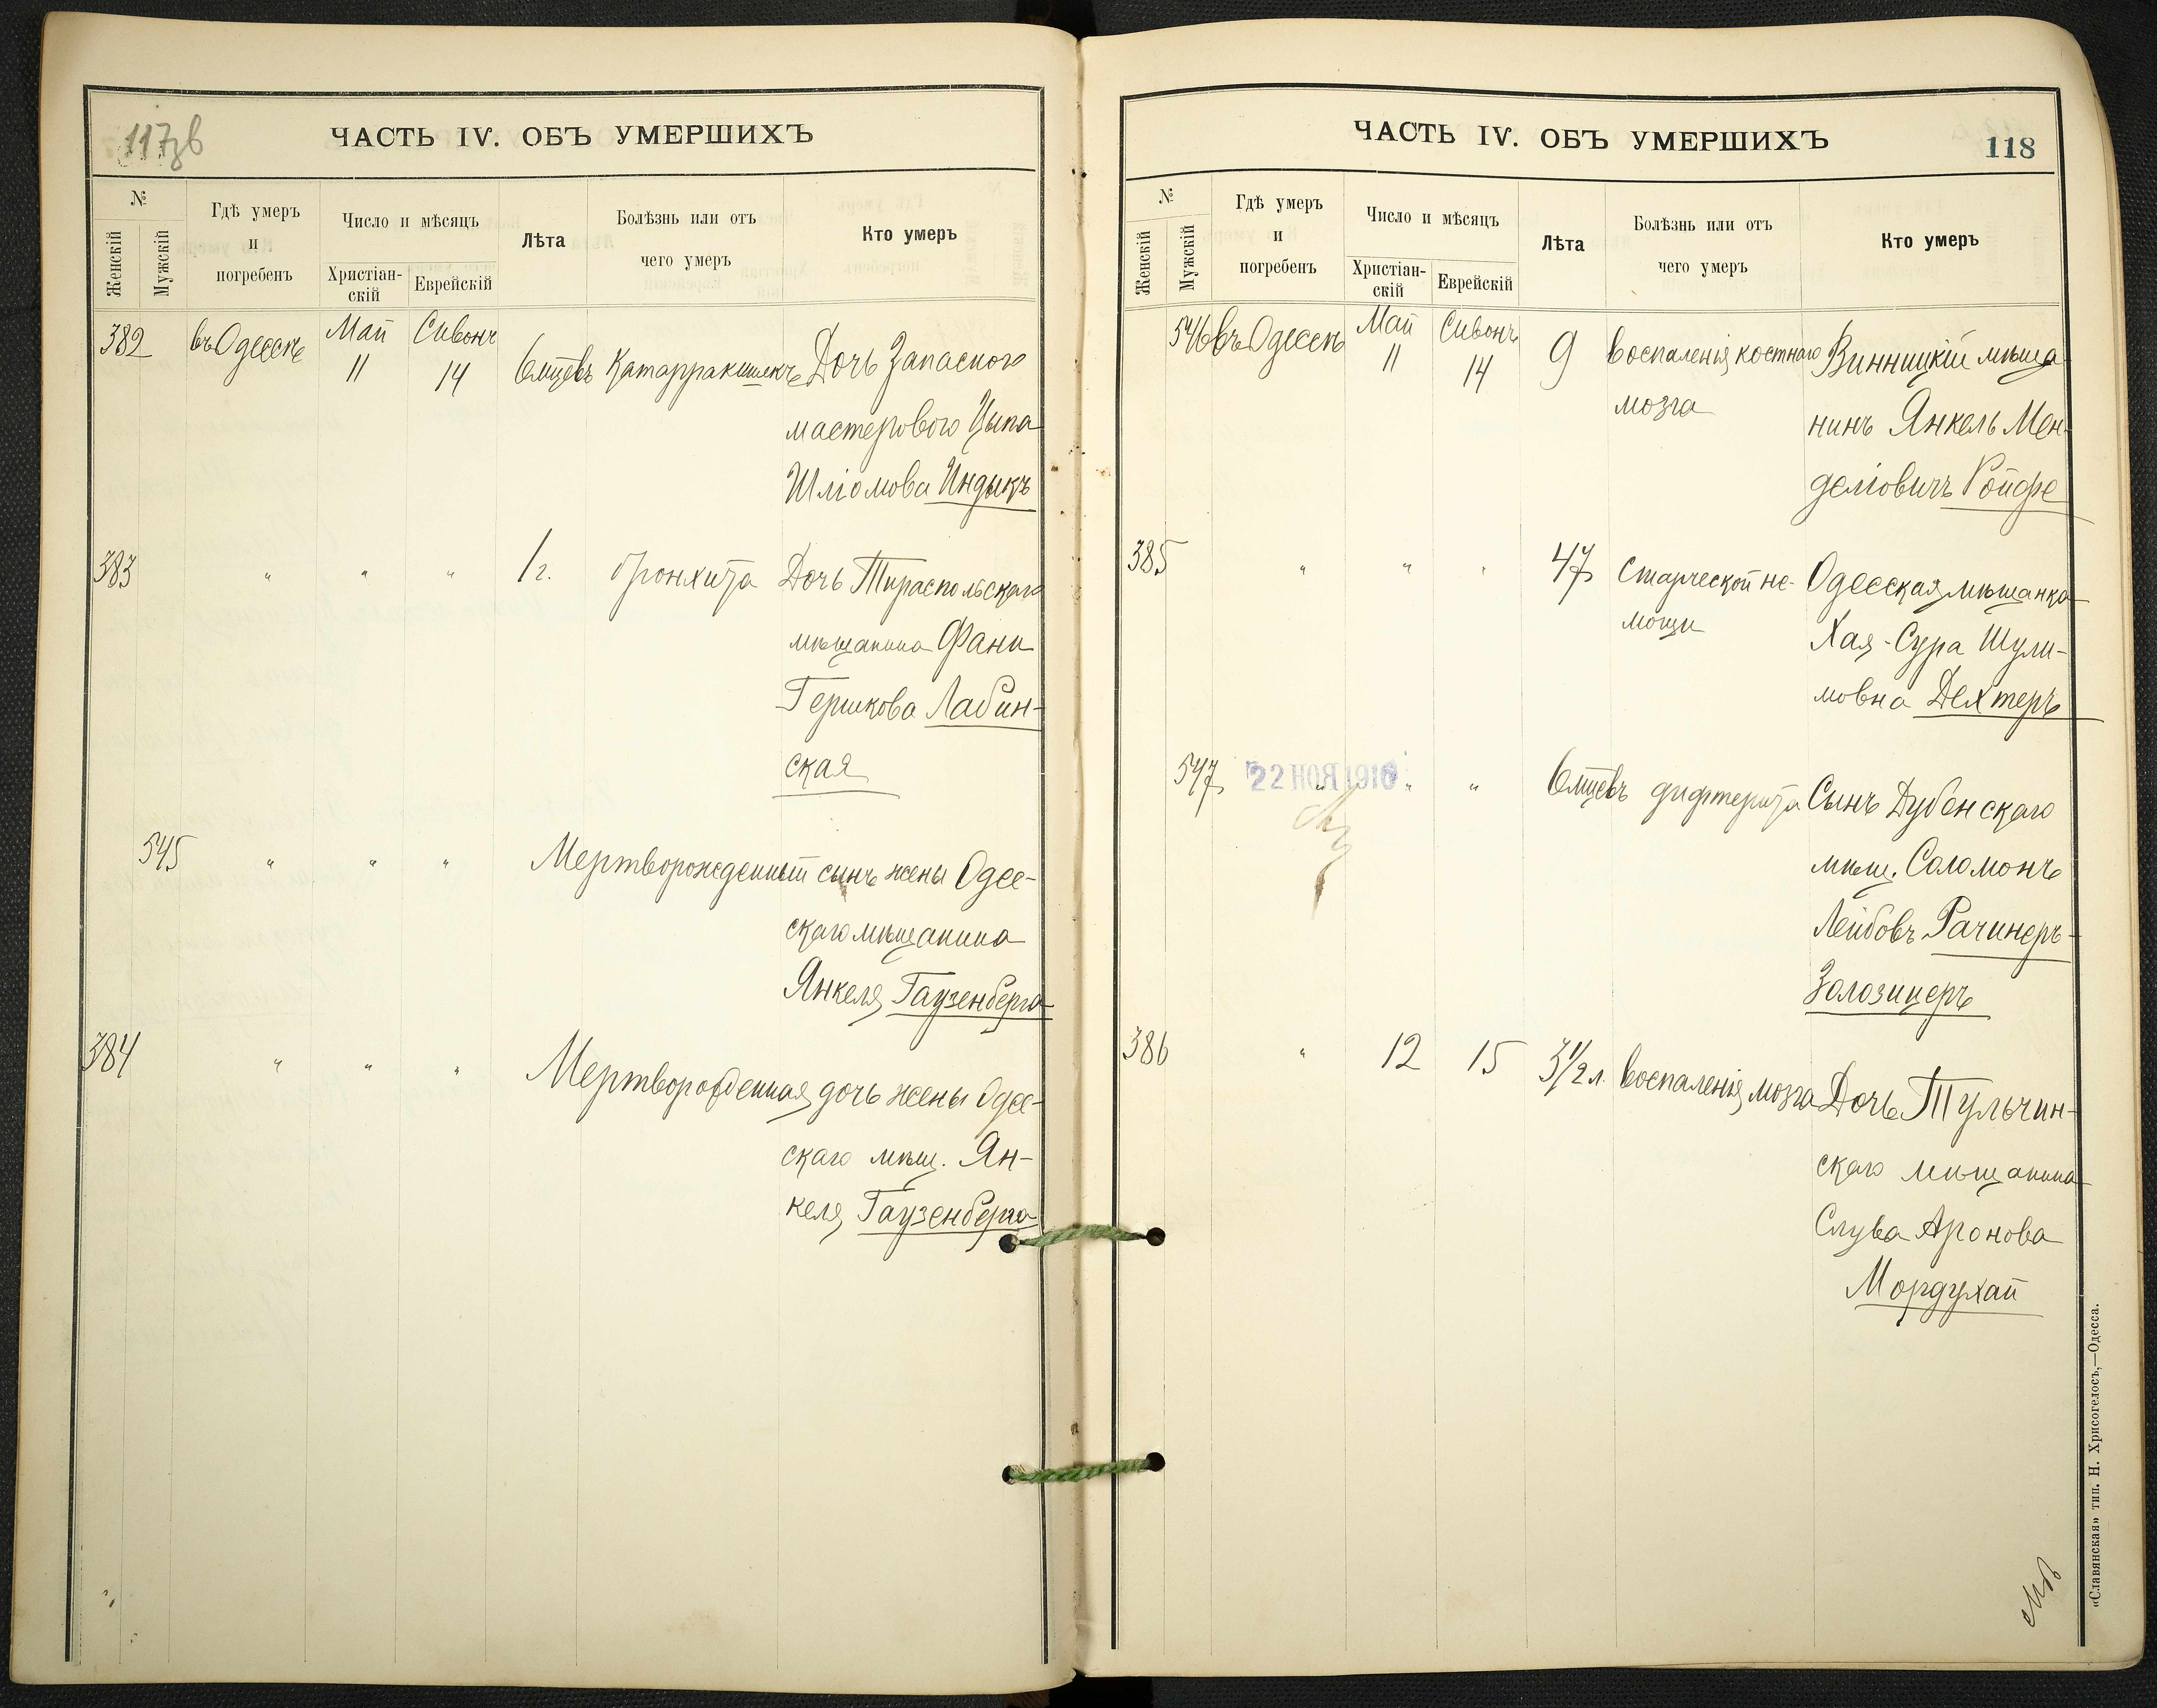 117 об
ЧАСТЬ IV. ОБЪ УМЕРШИХЪ
№
Женскій
Мужскій
Гдѣ умеръ
и
погребенъ
Число и мѣсяцъ
Христіан-
скій
Еврейскій
Лѣта
Болѣзнь или отъ
чего умеръ
Кто умеръ
382 въ Одессѣ Май Сивонъ
11 14 6 мцевъ Катарра кишекъ Дочь Запаснаго
мастерового Цыпа
Шліомова Индыкъ
383 " " " 1 г. бронхита Дочь Тираспольскаго
мѣщанина Фани
Гершкова Лабин-
ская
545 " " " Мертворожденный сынъ жены Одес-
скаго мѣщанина
Янкеля Гаузенберга
384 " " " Мертворожденная дочь жены Одес-
скаго мѣщ. Ян-
келя Гаузенберга
ЧАСТЬ IV. ОБЪ УМЕРШИХЪ
118
№
Женскій
Мужскій
Гдѣ умеръ
и
погребенъ
Число и мѣсяцъ
Христіан-
скій
Еврейскій
Лѣта
Болѣзнь или отъ
чего умеръ
Кто умеръ
546 въ Одессѣ Май Сивонъ
11 14 9 воспаленія костнаго Винницкій мѣща-
мозга нинъ Янкель Мен-
деліовичъ Ройфе
385 " " " 47 Старческой не- Одесская мѣщанка
мощи Хая-Сура Шули-
мовна Дехтеръ
547 22 НОЯ 1916 " " " 6 мцевъ дифтерита Сынъ Дубенскаго
мѣщ. Соломонъ
Лейбовъ Рачинеръ-
Золозицеръ
386 " 12 15 3 1/2 л. воспаленія мозга Дочь Тульчин-
скаго мѣщанина
Слува Аронова
Мордухай
«Славянская» тип. Н. Хрисогелосъ,—Одесса.